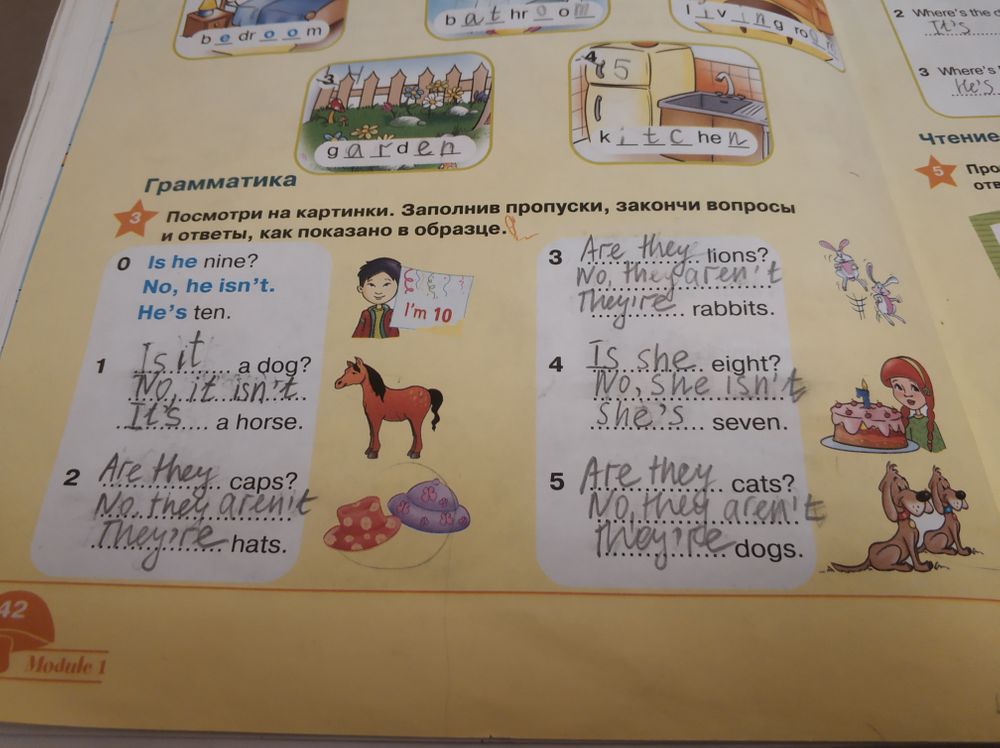 bedroom
bathroom
living room
2 Where's the
It's
3 Where's
He's
3
garden
4
5
kitchen
Грамматика
3 Посмотри на картинки. Заполнив пропуски, закончи вопросы
и ответы, как показано в образце.
0 Is he nine?
No, he isn't.
He's ten.
I'm 10
1 Is it a dog?
No, it isn't.
It's a horse.
2 Are they caps?
No, they aren't
They're hats.
3 Are they lions?
No, they aren't
They're rabbits.
4 Is she eight?
No, she isn't
She's seven.
7
5 Are they cats?
No, they aren't
They're dogs.
Чтение
5
42
Module 1